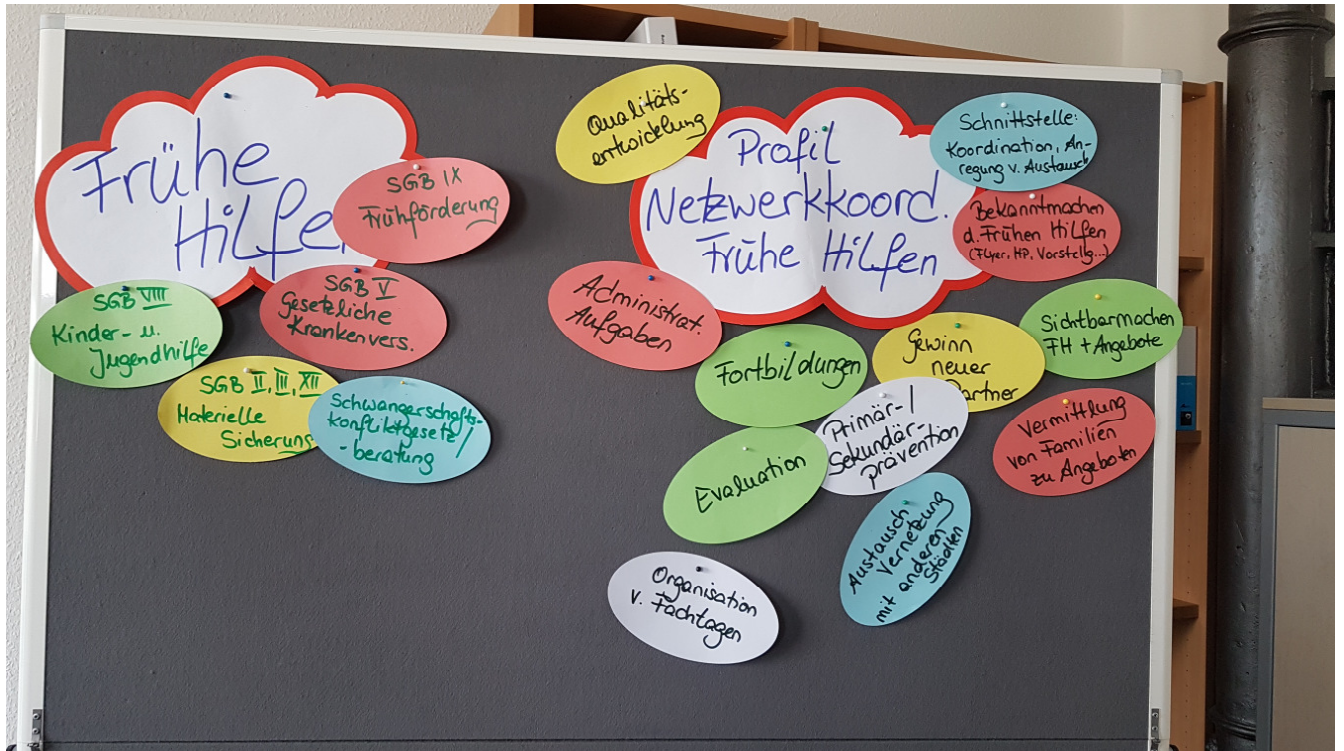 Frühe
Hilfen
SGB IX
Frühförderung
SGB VIII
Kinder- u.
Jugendhilfe
SGB V
Gesetzliche
Krankenvers.
SGB II, III, XII
Materielle
Sicherung
Schwangerschafts-
konfliktgesetz/
-beratung
Qualitäts-
entwicklung
Profil
Netzwerkkoord.
Frühe Hilfen
Schnittstelle:
Koordination, An-
regung v. Austausch
Bekanntmachen
d. Frühen Hilfen
(Flyer, HP, Vorstellg...)
Administrat.
Aufgaben
Fortbildungen
Gewinn
neuer
Partner
Sichtbarmachen
FH + Angebote
Primär-/
Sekundär-
prävention
Vermittlung
von Familien
zu Angeboten
Evaluation
Austausch
Vernetzung
mit anderen
Städten
Organisation
v. Fachtagen